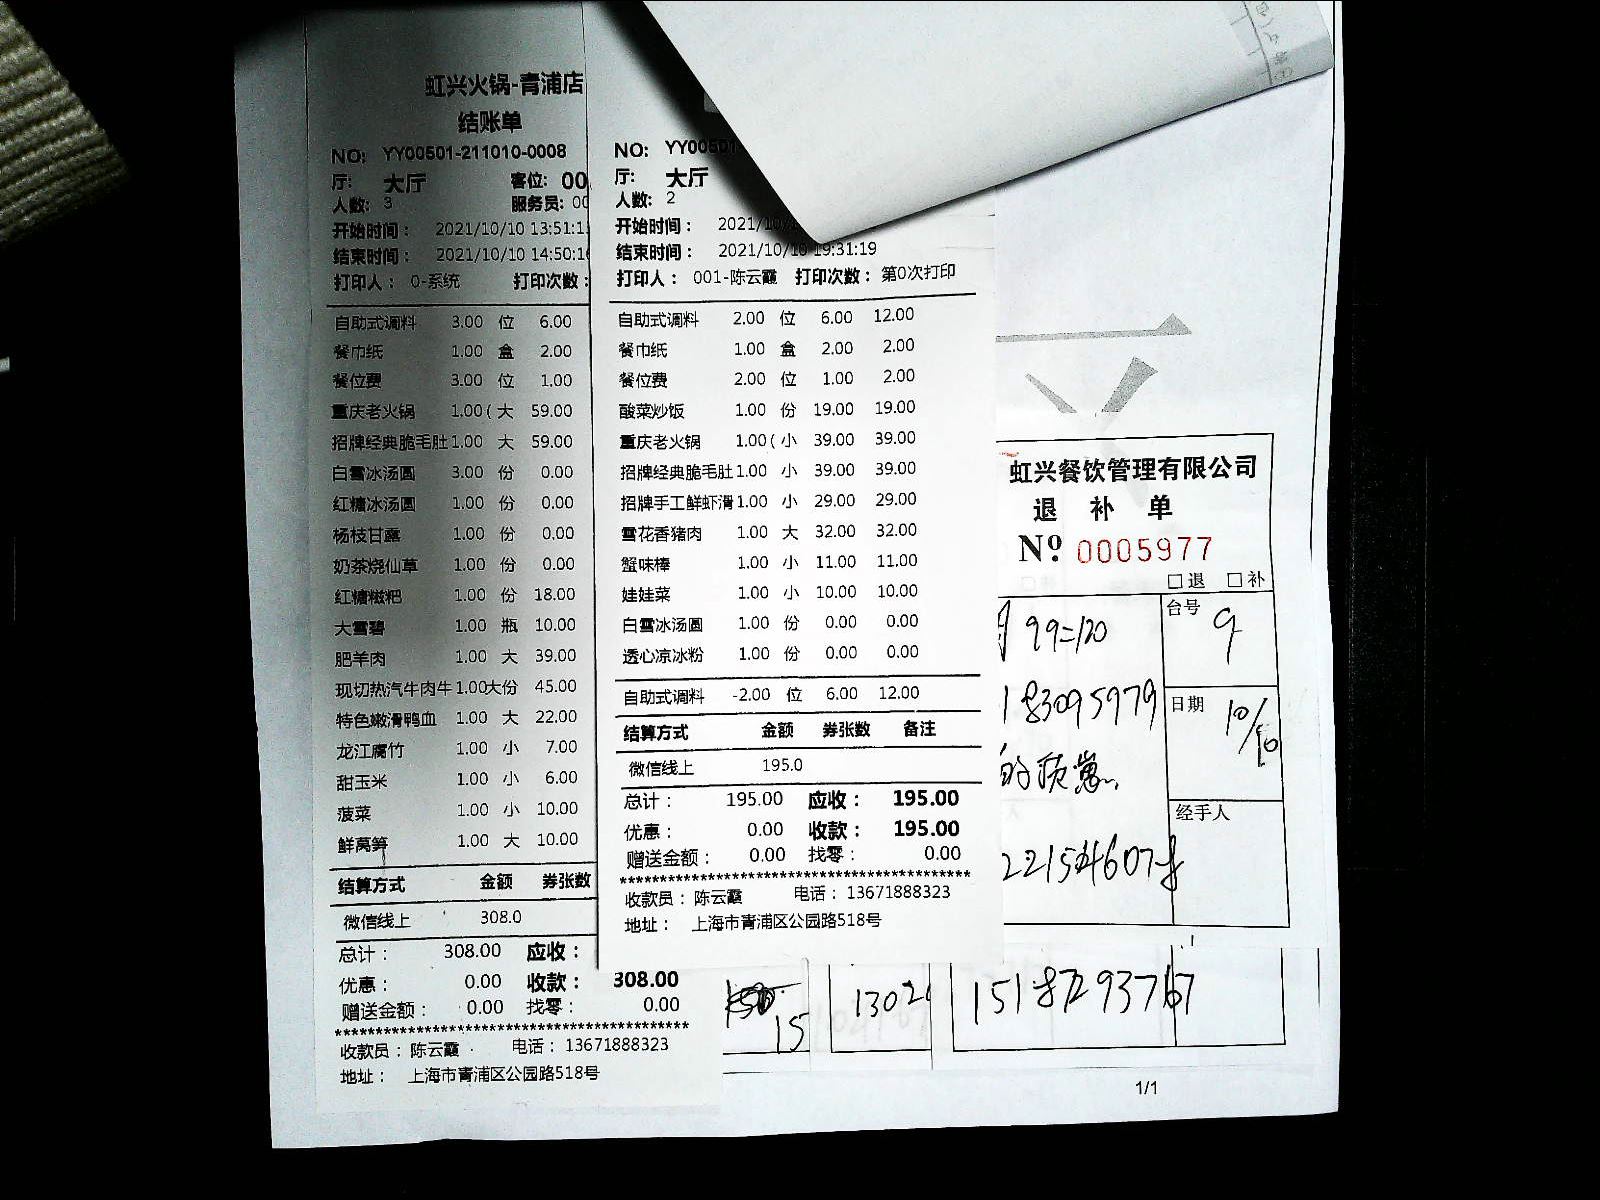 虹兴火锅-青浦店
结账单
NO: YY00501-211010-0008
厅: 大厅 客位: 00
人数: 3 服务员: 00
开始时间： 2021/10/10 13:51:1
结束时间： 2021/10/10 14:50:1
打印人： 0-系统 打印次数：
自助式调料 3.00 位 6.00
餐巾纸 1.00 盒 2.00
餐位费 3.00 位 1.00
重庆老火锅 1.00( 大 59.00
招牌经典脆毛肚 1.00 大 59.00
白雪冰汤圆 3.00 份 0.00
红糖冰汤圆 1.00 份 0.00
杨枝甘露 1.00 份 0.00
奶茶烧仙草 1.00 份 0.00
红糖糍粑 1.00 份 18.00
大雪碧 1.00 瓶 10.00
肥羊肉 1.00 大 39.00
现切热汽牛肉牛 1.00大份 45.00
特色嫩滑鸭血 1.00 大 22.00
龙江腐竹 1.00 小 7.00
甜玉米 1.00 小 6.00
菠菜 1.00 小 10.00
鲜莴笋 1.00 大 10.00
结算方式 金额 券张数
微信线上 308.0
总计： 308.00 应收：
优惠： 0.00 收款： 308.00
赠送金额： 0.00 找零： 0.00
****************************************
收款员：陈云霞 电话：13671888323
地址： 上海市青浦区公园路518号
NO: YY00501
厅: 大厅
人数: 2
开始时间： 2021/10
结束时间： 2021/10/10 19:31:19
打印人： 001-陈云霞 打印次数： 第0次打印
自助式调料 2.00 位 6.00 12.00
餐巾纸 1.00 盒 2.00 2.00
餐位费 2.00 位 1.00 2.00
酸菜炒饭 1.00 份 19.00 19.00
重庆老火锅 1.00( 小 39.00 39.00
招牌经典脆毛肚 1.00 小 39.00 39.00
招牌手工鲜虾滑 1.00 小 29.00 29.00
雪花香猪肉 1.00 大 32.00 32.00
蟹味棒 1.00 小 11.00 11.00
娃娃菜 1.00 小 10.00 10.00
白雪冰汤圆 1.00 份 0.00 0.00
透心凉冰粉 1.00 份 0.00 0.00
自助式调料 -2.00 位 6.00 12.00
结算方式 金额 券张数 备注
微信线上 195.0
总计： 195.00 应收： 195.00
优惠： 0.00 收款： 195.00
赠送金额： 0.00 找零： 0.00
****************************************
收款员：陈云霞 电话：13671888323
地址： 上海市青浦区公园路518号
虹兴餐饮管理有限公司
退 补 单
Nº 0005977
□退 □补
99=120
台号 9
183095979
日期 10/10
经手人
15
1302
15187293767
1/1